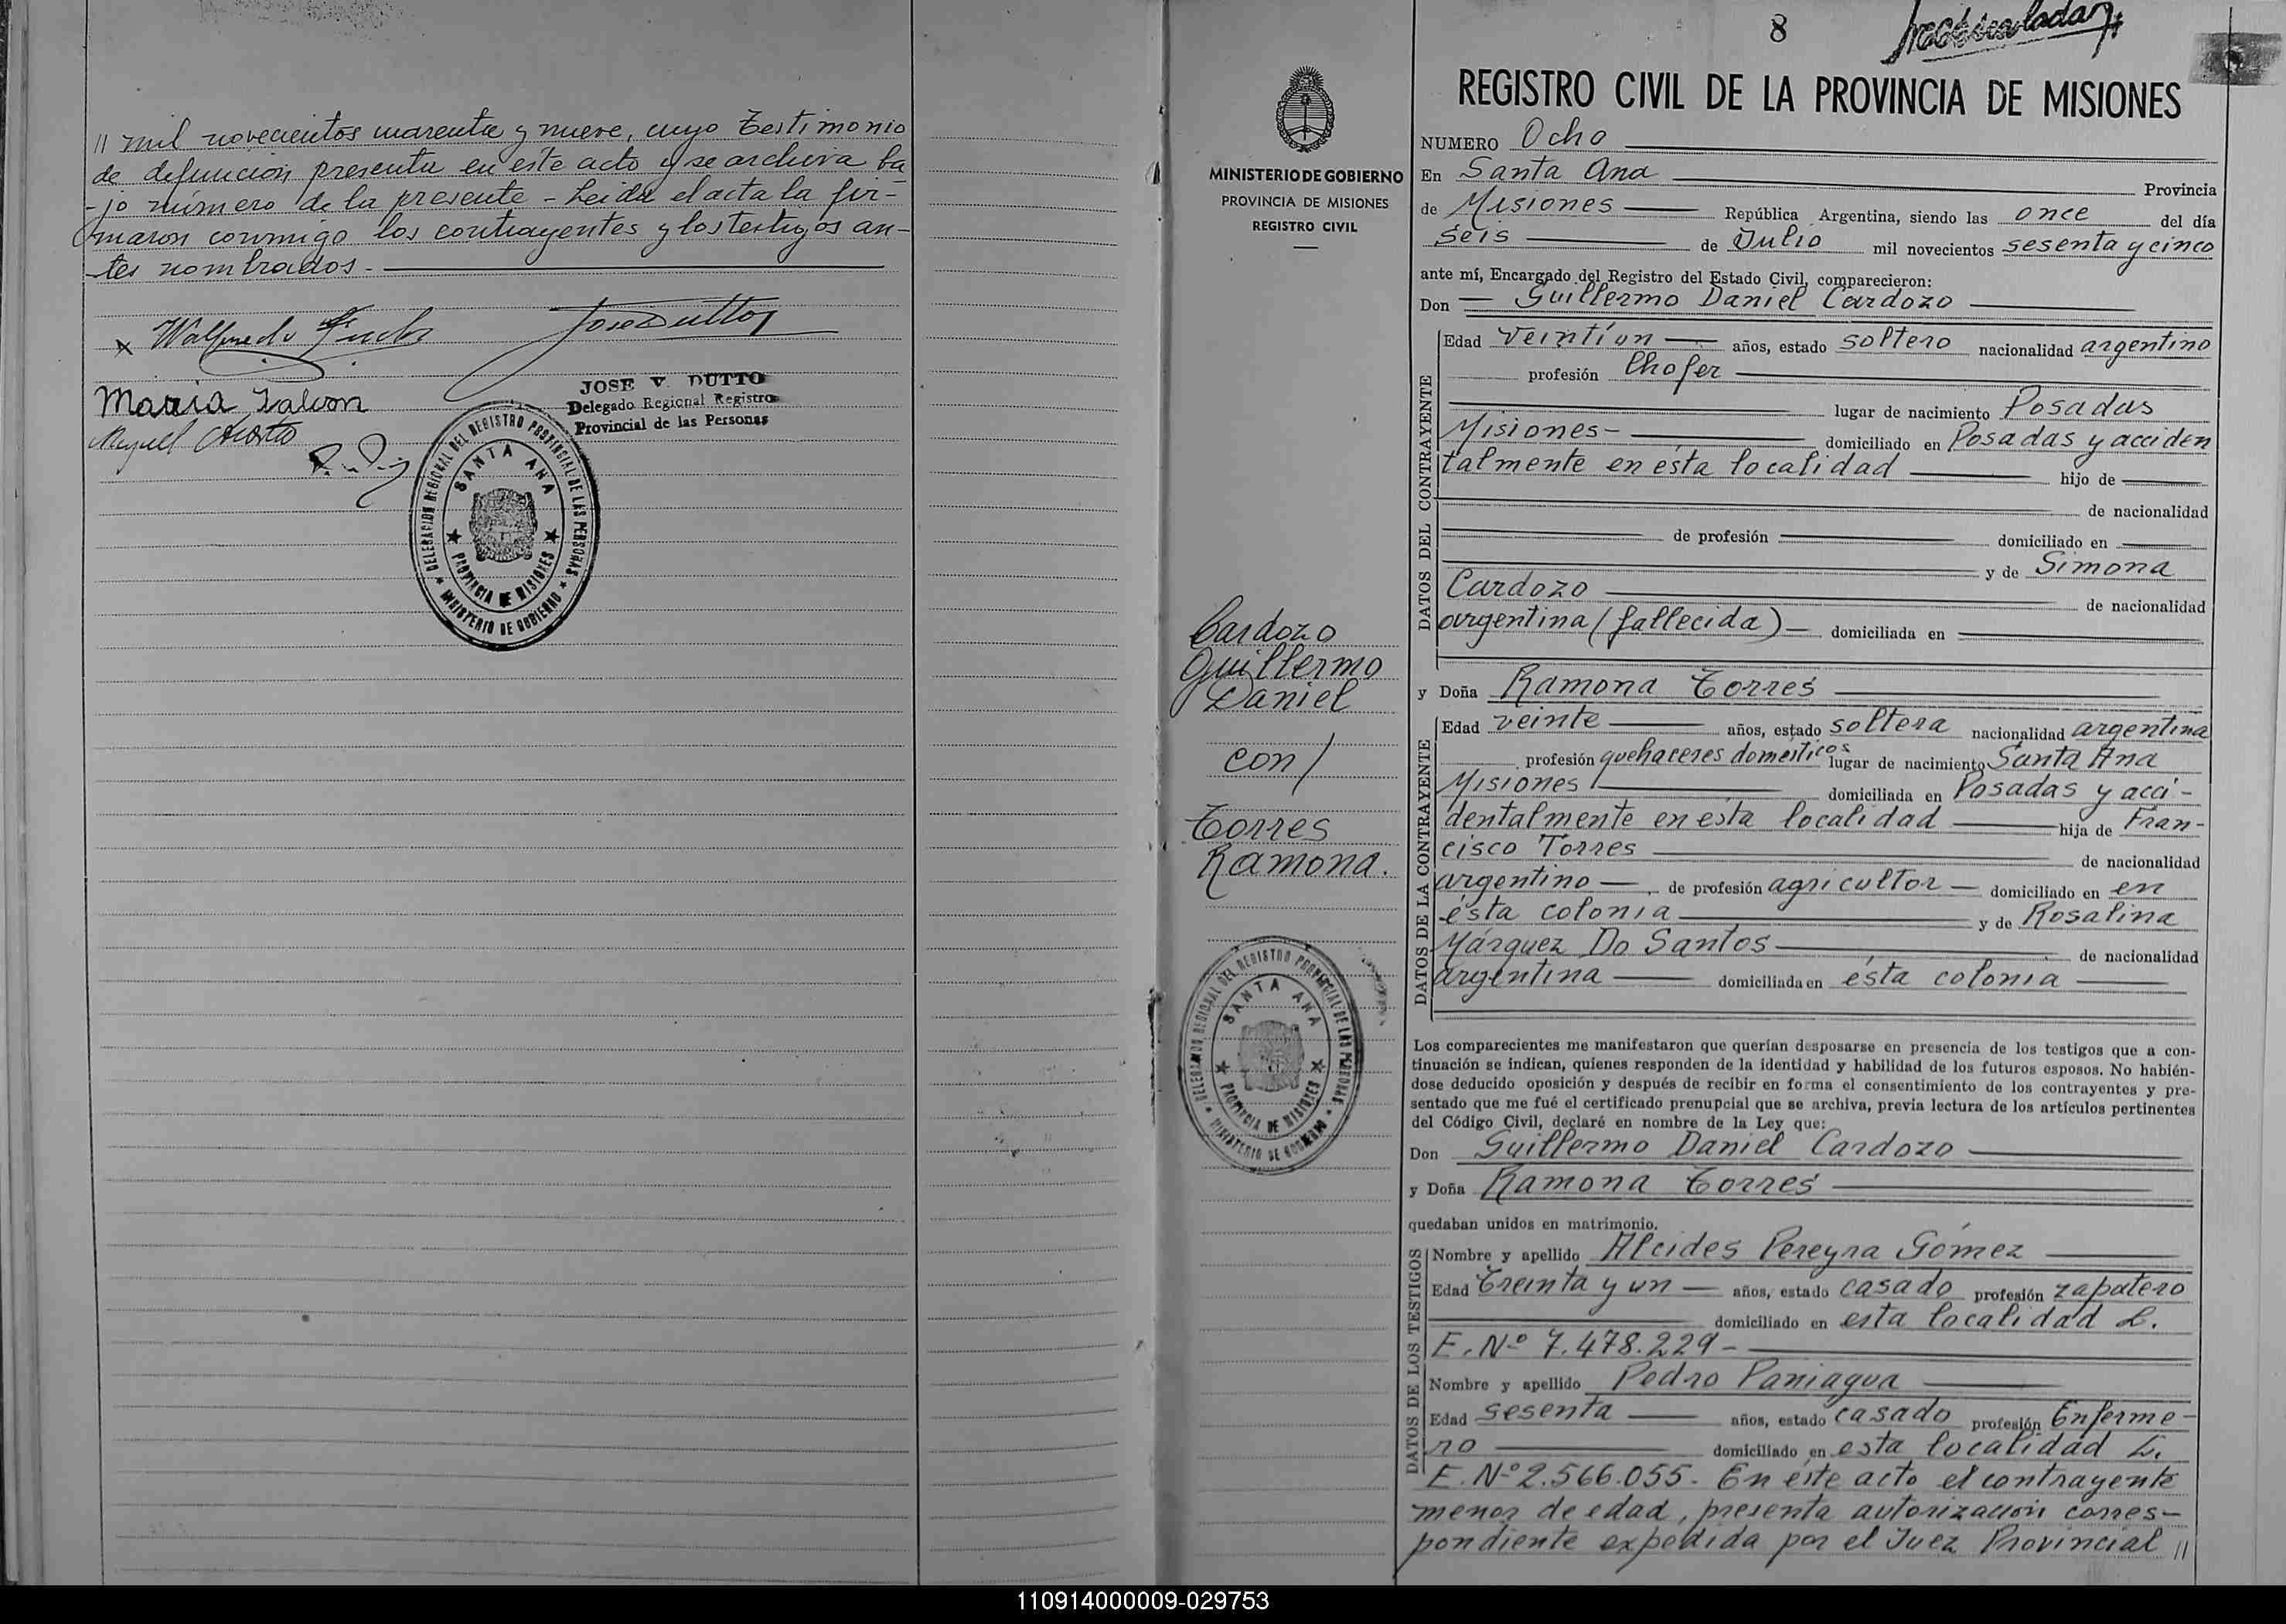 // mil novecientos cuarenta y nueve, cuyo testimonio
de defunción presenta en este acto y se archiva ba
-jo número de la presente - Leida el acta la fir-
maron conmigo los contrayentes y los testigos an-
tes nombrados.-
JOSE V DUTTO
Delegado Regional Registro
Provincial de las Personas
Maria Falcon
Miguel
DELEGACION REGIONAL DEL REGISTRO PROVINCIAL DE LAS PERSONAS
SANTA ANA
PROVINCIA DE MISIONES
MINISTERIO DE GOBIERNO
MINISTERIO DE GOBIERNO
PROVINCIA DE MISIONES
REGISTRO CIVIL
Cardozo
Guillermo
Daniel
con/
Torres
Ramona.
DELEGACION REGIONAL DEL REGISTRO PROVINCIAL DE LAS PERSONAS
SANTA ANA
PROVINCIA DE MISIONES
MINISTERIO DE GOBIERNO
8
REGISTRO CIVIL DE LA PROVINCIA DE MISIONES
NUMERO Ocho
En Santa Ana Provincia
de Misiones República Argentina, siendo las once del día
seis de Julio mil novecientos sesenta y cinco
ante mí, Encargado del Registro del Estado Civil, comparecieron:
Don Guillermo Daniel Cardozo
DATOS DEL CONTRAYENTE
Edad veintíun años, estado soltero nacionalidad argentino
profesión Chofer
lugar de nacimiento Posadas
Misiones- domiciliado en Posadas y acciden
talmente en ésta localidad hijo de
de nacionalidad
de profesión domiciliado en
y de Simona
Cardozo de nacionalidad
argentina (fallecida) domiciliada en
y Doña Ramona Torres
DATOS DE LA CONTRAYENTE
Edad veinte años, estado soltera nacionalidad argentina
profesión quehaceres domésticos lugar de nacimiento Santa Ana
Misiones domiciliada en Posadas y acci-
dentalmente en ésta localidad hija de Fran-
cisco Torres de nacionalidad
argentino de profesión agricultor domiciliado en en
ésta colonia y de Rosalina
Márquez Do Santos de nacionalidad
argentina domiciliada en ésta colonia
Los comparecientes me manifestaron que querían desposarse en presencia de los testigos que a con-
tinuación se indican, quienes responden de la identidad y habilidad de los futuros esposos. No habién-
dose deducido oposición y después de recibir en forma el consentimiento de los contrayentes y pre-
sentado que me fué el certificado prenupcial que se archiva, previa lectura de los artículos pertinentes
del Código Civil, declaré en nombre de la Ley que:
Don Guillermo Daniel Cardozo
y Doña Ramona Torres
quedaban unidos en matrimonio.
DATOS DE LOS TESTIGOS
Nombre y apellido Alcides Pereyra Gómez
Edad Treinta y un años, estado casado profesión zapatero
domiciliado en esta localidad L.
E. Nº 7.478.229-
Nombre y apellido Pedro Paniagua
Edad sesenta años, estado casado profesión Enferme-
ro domiciliado en esta localidad L.
E. Nº 2.566.055. En éste acto el contrayente
menor de edad, presenta autorización corres-
pondiente expedida por el Juez Provincial //
110914000009-029753